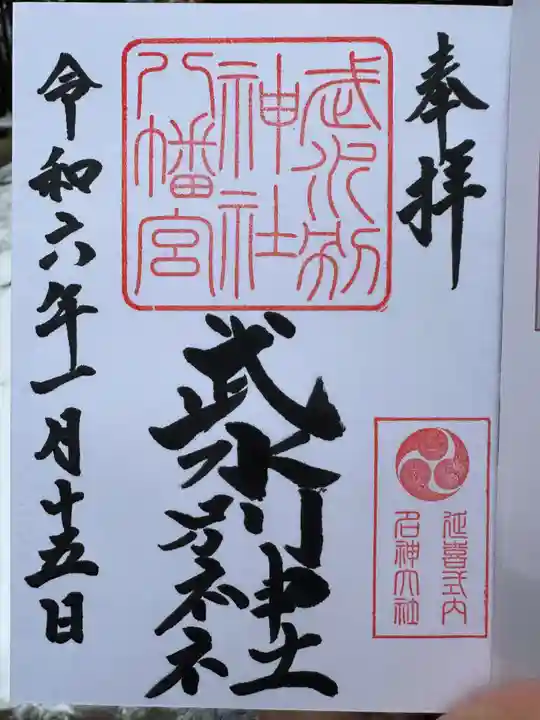 奉拝
武水別
神社
八幡宮
武水別神社
延喜式内
名神大社
令和六年一月十五日